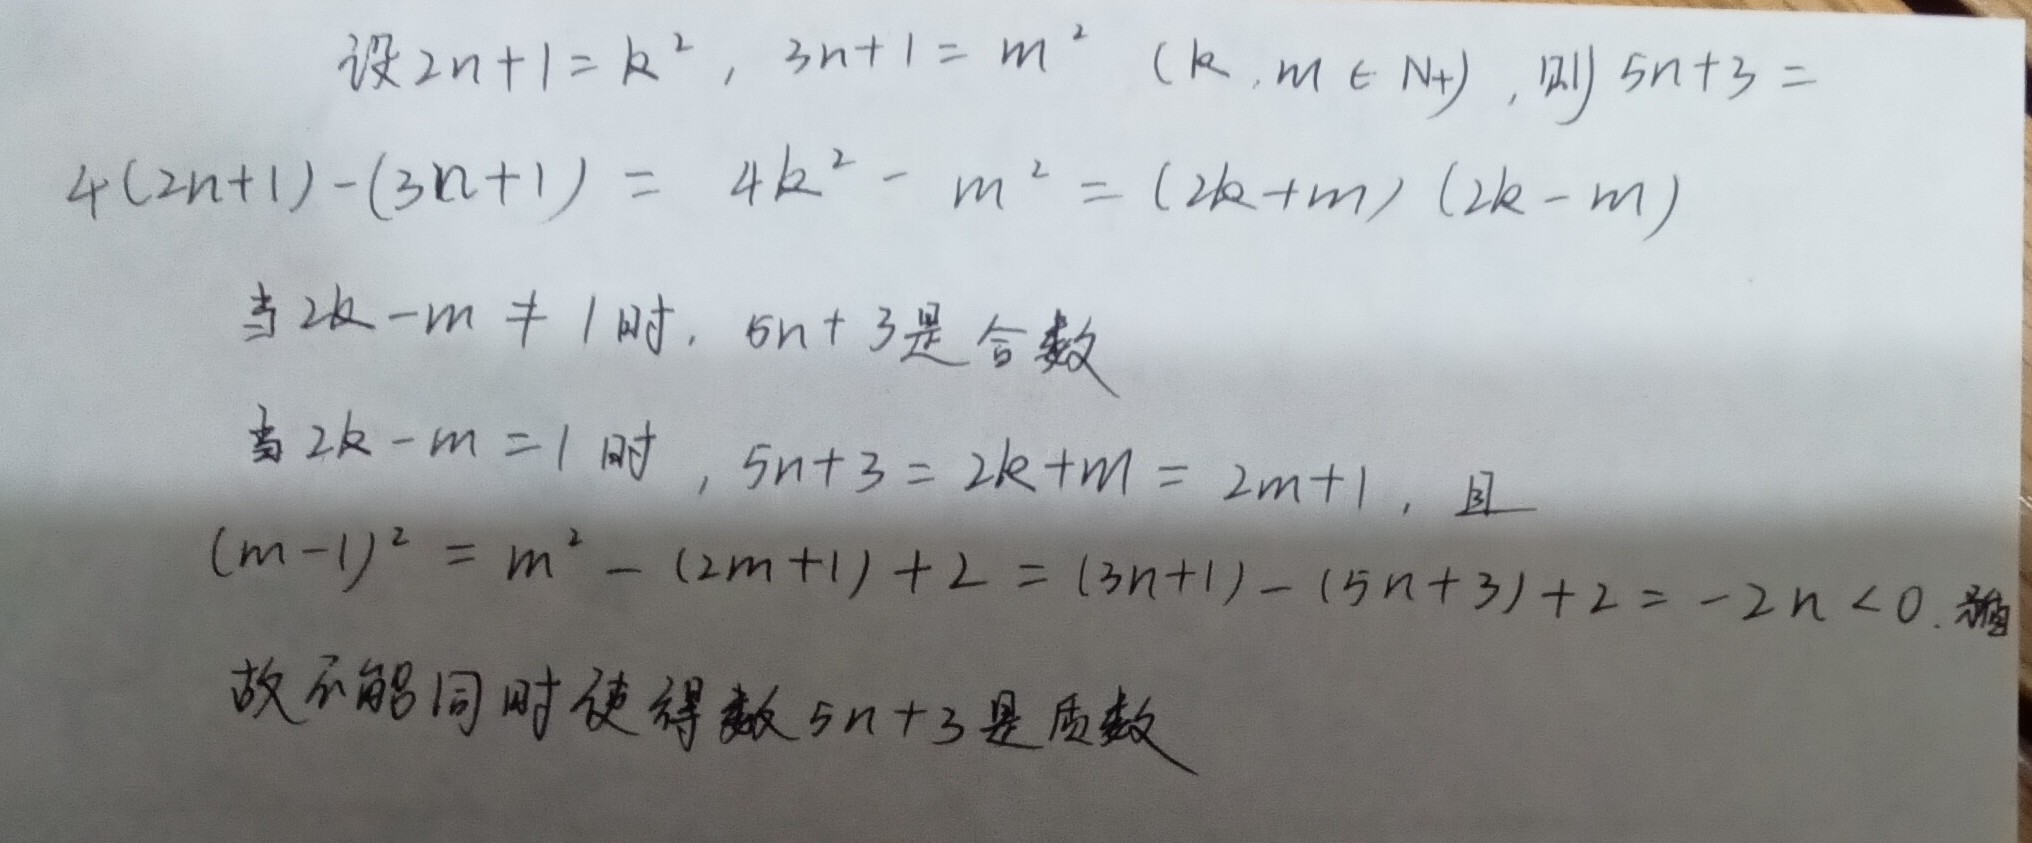 设2n+1=k², 3n+1=m² (k,m∈N+), 则5n+3=
4(2n+1)-(3n+1)= 4k²-m²=(2k+m)(2k-m)
当2k-m≠1时, 5n+3是合数
当2k-m=1时, 5n+3=2k+m=2m+1, 且
(m-1)²=m²-(2m+1)+2=(3n+1)-(5n+3)+2=-2n<0.
故不能同时使得数5n+3是质数